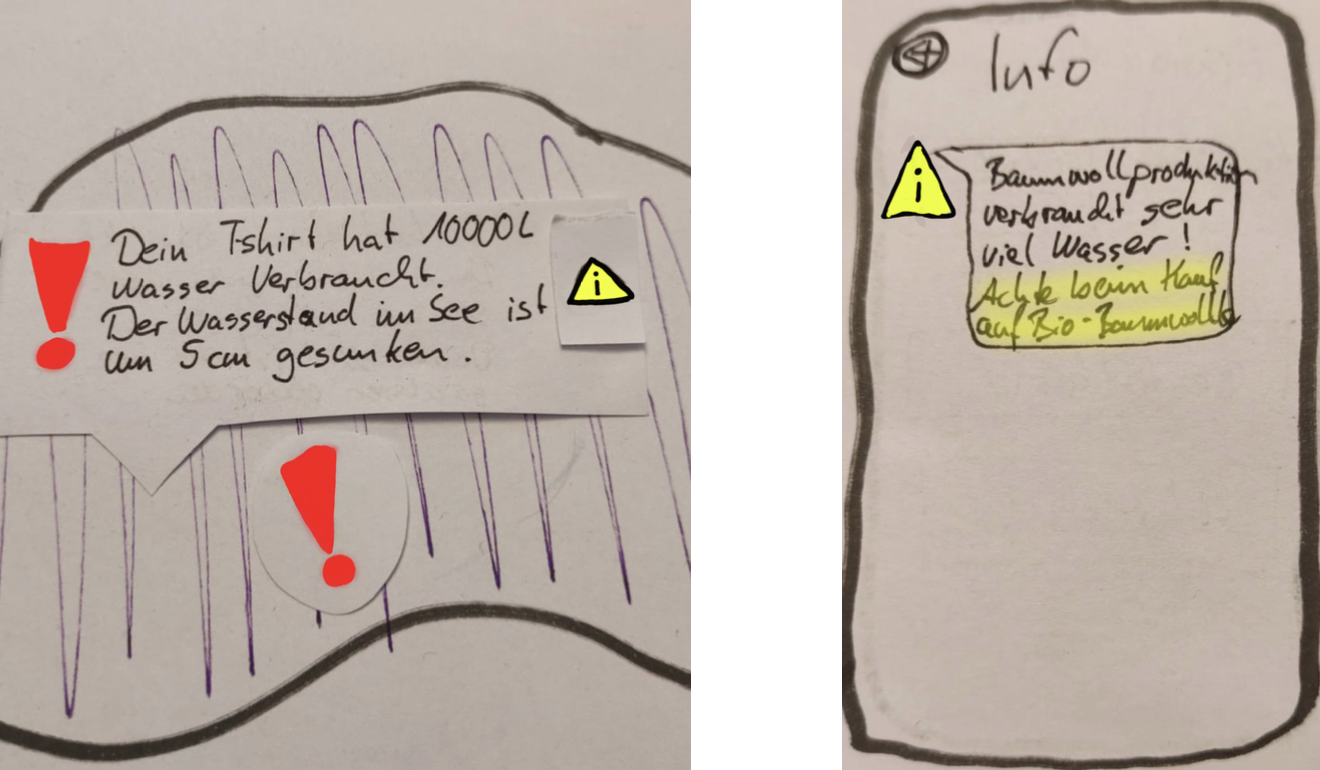 Dein T-shirt hat 10000L
Wasser Verbraucht.
Der Wasserstand im See ist
um 5cm gesunken.
i
Info
i
Baumwollproduktion
verbraucht sehr
viel Wasser!
Achte beim Kauf
auf Bio-Baumwolle